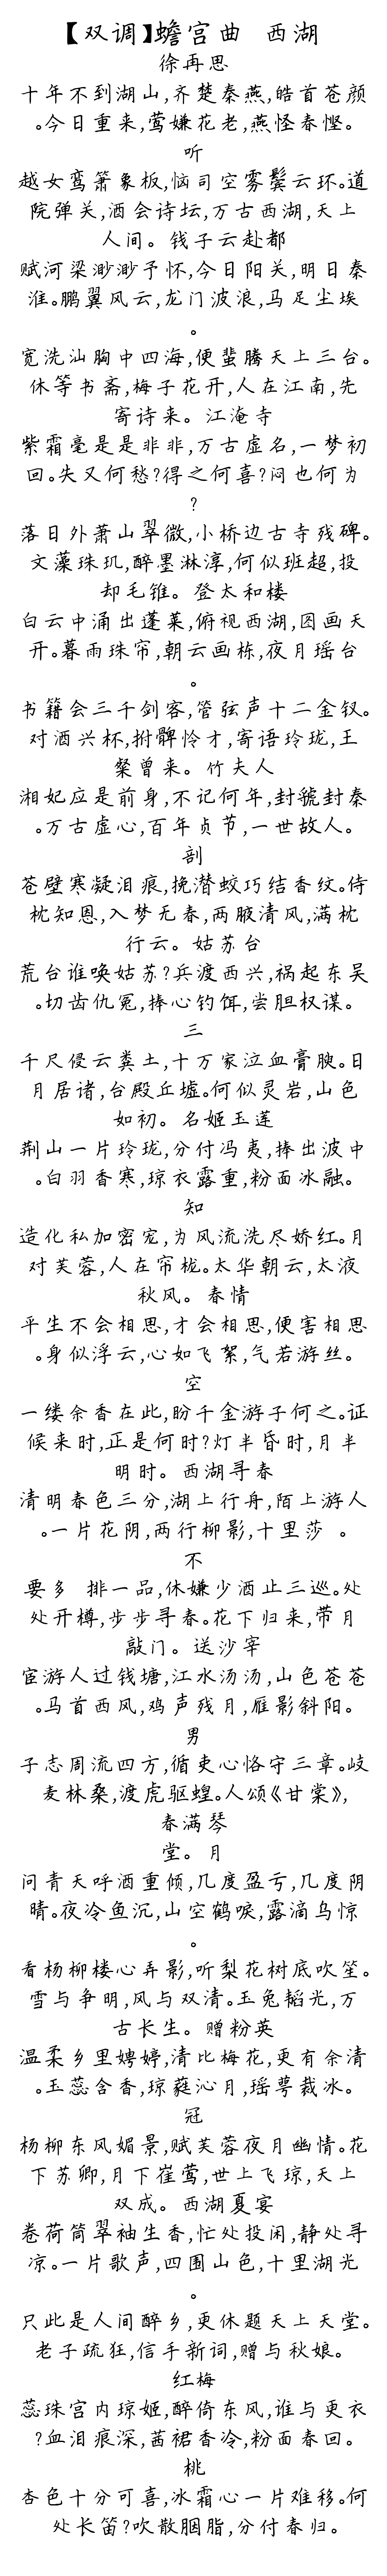 【双调】蟾宫曲 西湖
徐再思
十年不到湖山,齐楚秦燕,皓首苍颜
。今日重来,莺嫌花老,燕怪春悭。
听
越女鸾箫象板,恼司空雾鬓云环。道
院弹关,酒会诗坛,万古西湖,天上
人间。 钱子云赴都
赋河梁渺渺予怀,今日阳关,明日秦
淮。鹏翼风云,龙门波浪,马足尘埃
。
宽洗汕胸中四海,便蜚腾天上三台。
休等书斋,梅子花开,人在江南,先
寄诗来。 江淹寺
紫霜毫是是非非,万古虚名,一梦初
回。失又何愁?得之何喜?闷也何为
?
落日外萧山翠微,小桥边古寺残碑。
文藻珠玑,醉墨淋淳,何似班超,投
却毛锥。 登太和楼
白云中涌出蓬莱,俯视西湖,图画天
开。暮雨珠帘,朝云画栋,夜月瑶台
。
书籍会三千剑客,管弦声十二金钗。
对酒兴杯,拊髀怜才,寄语玲珑,王
粲曾来。 竹夫人
湘妃应是前身,不记何年,封虢封秦
。万古虚心,百年贞节,一世故人。
剖
苍壁寒凝泪痕,挽潜蛟巧结香纹。侍
枕知恩,入梦无春,两腋清风,满枕
行云。 姑苏台
荒台谁唤姑苏?兵渡西兴,祸起东吴
。切齿仇冤,捧心钓饵,尝胆权谋。
三
千尺侵云粪土,十万家泣血膏腴。日
月居诸,台殿丘墟。何似灵岩,山色
如初。 名姬玉莲
荆山一片玲珑,分付冯夷,捧出波中
。白羽香寒,琼衣露重,粉面冰融。
知
造化私加密宠,为风流洗尽娇红。月
对芙蓉,人在帘栊。太华朝云,太液
秋风。 春情
平生不会相思,才会相思,便害相思
。身似浮云,心如飞絮,气若游丝。
空
一缕余香在此,盼千金游子何之。证
候来时,正是何时?灯半昏时,月半
明时。 西湖寻春
清明春色三分,湖上行舟,陌上游人
。一片花阴,两行柳影,十里莎 。
不
要多 排一品,休嫌少酒止三巡。处
处开樽,步步寻春。花下归来,带月
敲门。 送沙宰
宦游人过钱塘,江水汤汤,山色苍苍
。马首西风,鸡声残月,雁影斜阳。
男
子志周流四方,循吏心恪守三章。岐
麦林桑,渡虎驱蝗。人颂《甘棠》,
春满琴
堂。 月
问青天呼酒重倾,几度盈亏,几度阴
晴。夜冷鱼沉,山空鹤唳,露滴乌惊
。
看杨柳楼心弄影,听梨花树底吹笙。
雪与争明,风与双清。玉兔韬光,万
古长生。 赠粉英
温柔乡里娉婷,清比梅花,更有余清
。玉蕊含香,琼蕤沁月,瑶萼裁冰。
冠
杨柳东风媚景,赋芙蓉夜月幽情。花
下苏卿,月下崔莺,世上飞琼,天上
双成。 西湖夏宴
卷荷筒翠袖生香,忙处投闲,静处寻
凉。一片歌声,四围山色,十里湖光
。
只此是人间醉乡,更休题天上天堂。
老子疏狂,信手新词,赠与秋娘。
红梅
蕊珠宫内琼姬,醉倚东风,谁与更衣
?血泪痕深,茜裙香冷,粉面春回。
桃
杏色十分可喜,冰霜心一片难移。何
处长笛?吹散胭脂,分付春归。